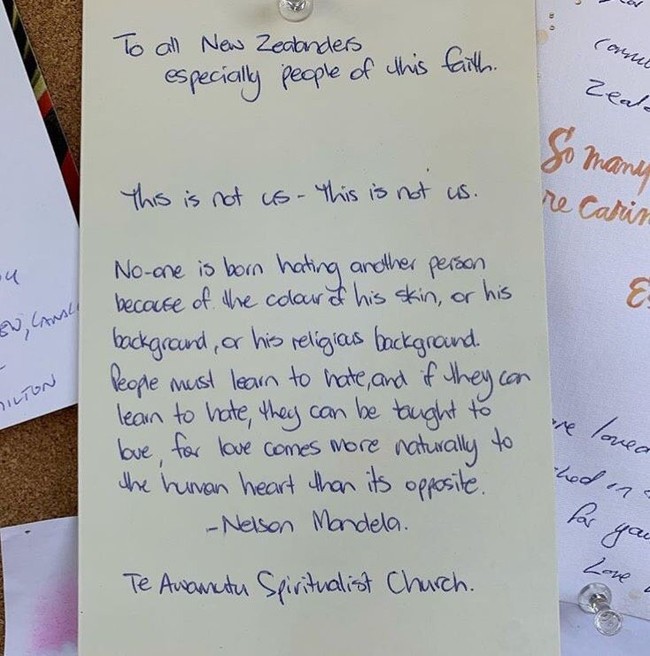 To all New Zealanders
especially people of this faith.
This is not us - This is not us.
No-one is born hating another person
because of the colour of his skin, or his
background, or his religious background.
People must learn to hate, and if they can
learn to hate, they can be taught to
love, for love comes more naturally to
the human heart than its opposite.
- Nelson Mandela.
Te Awamutu Spiritualist Church.
So many
re carin
loved
in
for you
Love